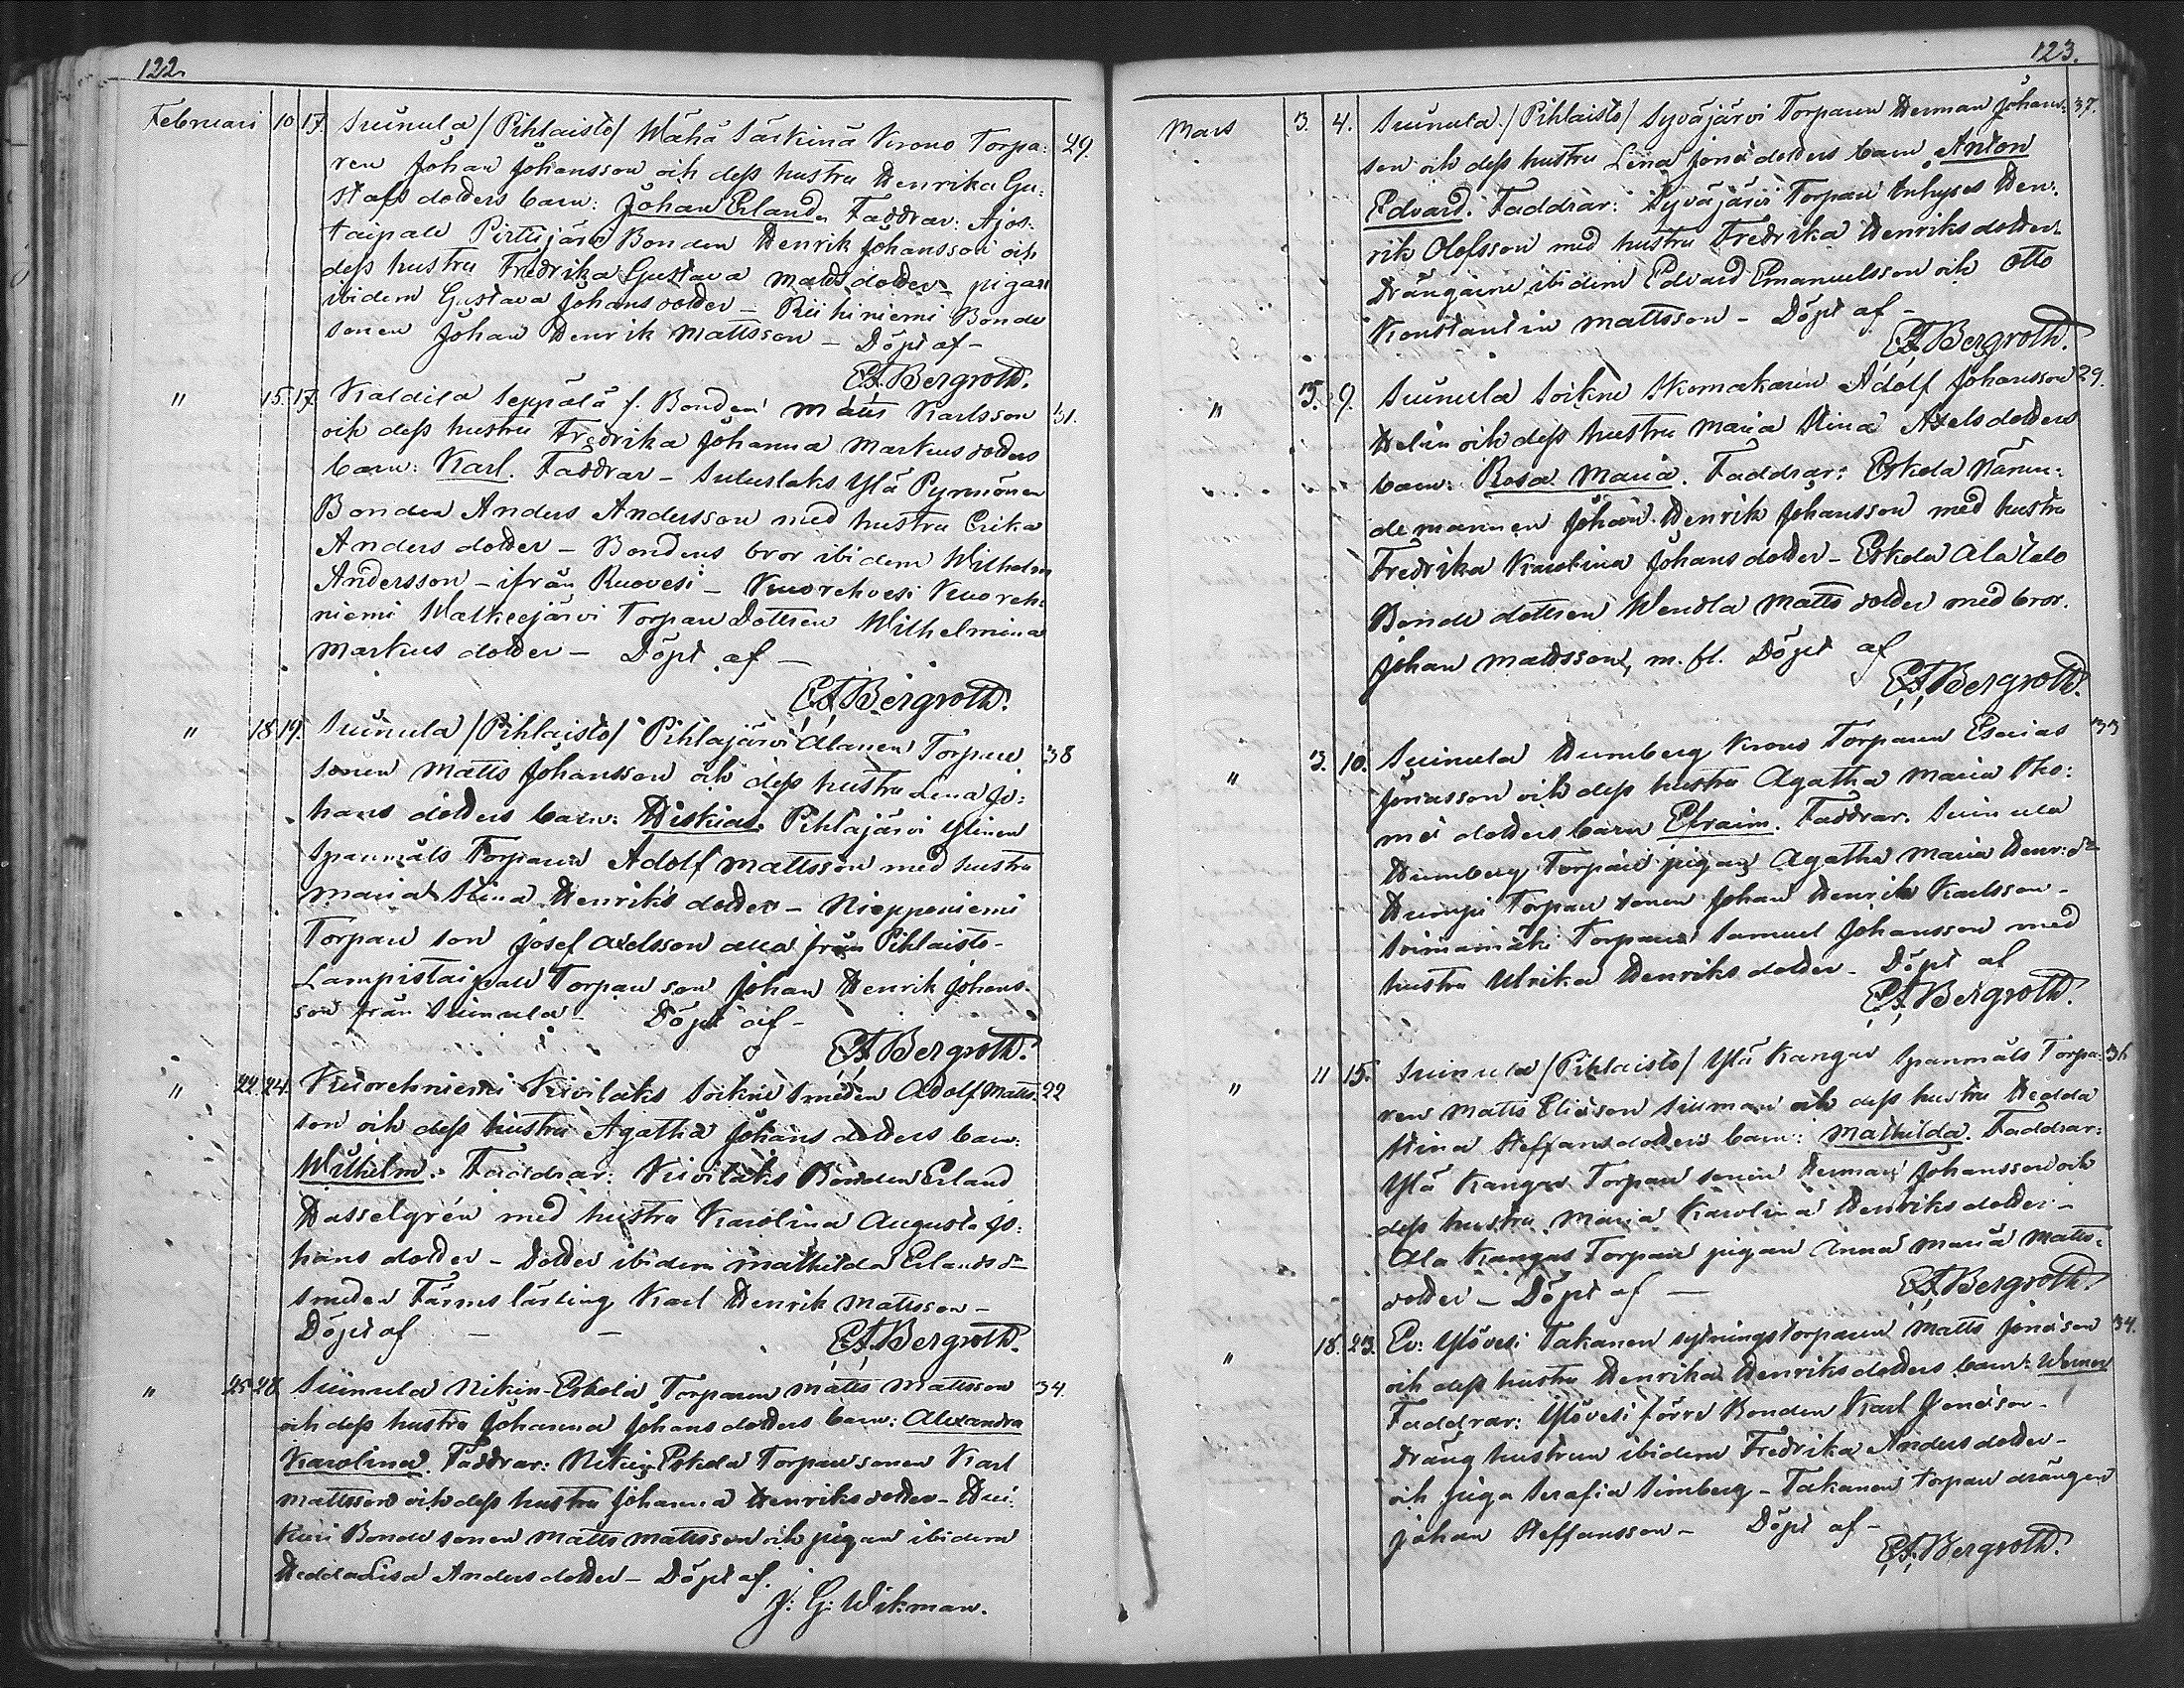 122.
Februari 10 17. Suinula /Pihlaisto/ Wähä Särkinä Krono Torpa: 29.
ren Johan Johansson och dess hustru Henrika Gu:
stafsdotters barn: Johan Erland. Faddrar: Ajos:
taipale Pirttijärvi Bonden Henrik Johansson och
dess hustru Fredrika Gustava Mattsdotter - pigan
ibidem Gustava Johansdotter - Riihiniemi Bonde
sonen Johan Henrik Mattsson - Döpt af -
E.F. Bergroth.
" 15. 17. Kaldila Seppälä f. Bonden Matts Karlsson 31.
och dess hustru Fredrika Johanna Markusdotters
barn: Karl. Faddrar - Suluslaks Ylä Pynnönen
Bonden Anders Andersson med hustru Erika
Andersdotter - Bondens bror ibidem Wilhelm
Andersson - ifrån Ruovesi - Kuorehvesi Kuoreh:
niemi Walkeejärvi Torpare Dottren Wilhelmina
Markusdotter - Döpt af -
E.F. Bergroth.
" 18 19. Suinula /Pihlaisto/ Pihlajärvi Alanen Torpare 38
sonen Matts Johansson och dess hustru Lena Jo:
hansdotters barn: Hiskias. Pihlajärvi Ylinen
Spanmåls Torparen Adolf Mattsson med hustru
Maria Stina Henriksdotter - Nieppeniemi
Torpare son Josef Axelsson alla från Pihlaisto -
Lampistaipale Torpare son Johan Henrik Johans:
son från Suinula - Döpt af -
E.F. Bergroth.
" 22. 24. Kuorehniemi Kivilaks Sockne Smeden Adolf Matts: 22
son och dess hustru Agatha Johansdotters barn:
Wilhelm. Faddrar: Kivilaks Bonden Erland
Hasselgrén med hustru Karolina Augusta Jo:
hansdotter - Dotter ibidem Mathilda Erlandsdr
Smeden Färms lärling Karl Henrik Mattsson -
Döpt af - - E.F. Bergroth.
" 25 28. Suinula Nikin-Eskola Torparen Matts Mattsson 34.
och dess hustru Johanna Johansdotters barn: Alexandra
Karolina. Faddrar: Nikin-Eskola Torpare sonen Karl
Mattsson och dess hustru Johanna Henriksdotter - Hui:
kuri Bonde sonen Matts Mattsson och pigan ibidem
Hedda Lisa Andersdotter - Döpt af.
J: G: Wikman.
123.
Mars 3. 4. Suinula /Pihlaisto/ Syväjärvi Torparen Herman Johans: 37.
son och dess hustru Lena Jonædotters barn Anton
Edvard. Faddrar: Syväjärvi Torpare Inhyses Hen:
rik Olofsson med hustru Fredrika Henriksdotter
Drängarne ibidem Edvard Emanuelsson och Otto
Konstantin Mattsson - Döpt af -
E.F. Bergroth.
" 5. 9. Suinula Sockne Skomakaren Adolf Johansson 29.
Helin och dess hustru Maria Stina Axelsdotters
barn: Rosa Maria. Faddrar: Eskola Nämn:
demannen Johan Henrik Johansson med hustru
Fredrika Karolina Johansdotter - Eskola Alatalo
Bonde dottren Wendla Mattsdotter med bror
Johan Mattsson, m. fl. Döpt af
E.F. Bergroth.
" 3. 10. Suinula Humberg Krono Torparen Esaias 33
Jonasson och dess hustru Agatha Maria Tho:
mædotters barn Efraim. Faddrar: Suinula
Humberg Torpare pigan Agatha Maria Henr:dr
Humpi Torpare sonen Johan Henrik Karlsson -
Soimamäki Torparen Samuel Johansson med
hustru Ulrika Henriksdotter - Döpt af
E.F. Bergroth.
" 11 15. Suinula /Pihlaisto/ Ylä Kangas Spanmåls Torpa: 36
ren Matts Eliæson Siuman och dess hustru Hedda
Stina Steffansdotters barn: Mathilda. Faddrar:
Ylä Kangas Torpare sonen Herman Johansson och
dess hustru Maria Karolina Henriksdotter -
Ala Kangas Torpare pigan Anna Maria Matts:
dotter - Döpt af - E.F. Bergroth.
" 18. 23. Ev: Ylövesi Takanen sytningstorparen Matts Jonæson 34.
och dess hustru Henrika Henriksdotters barn: Werner
Faddrar: Ylövesi förre Bonden Karl Jonæson -
Dräng hustrun ibidem Fredrika Andersdotter -
och piga Serafia Simberg - Takanen Torpare drängen
Johan Steffansson - Döpt af -
E.F. Bergroth.